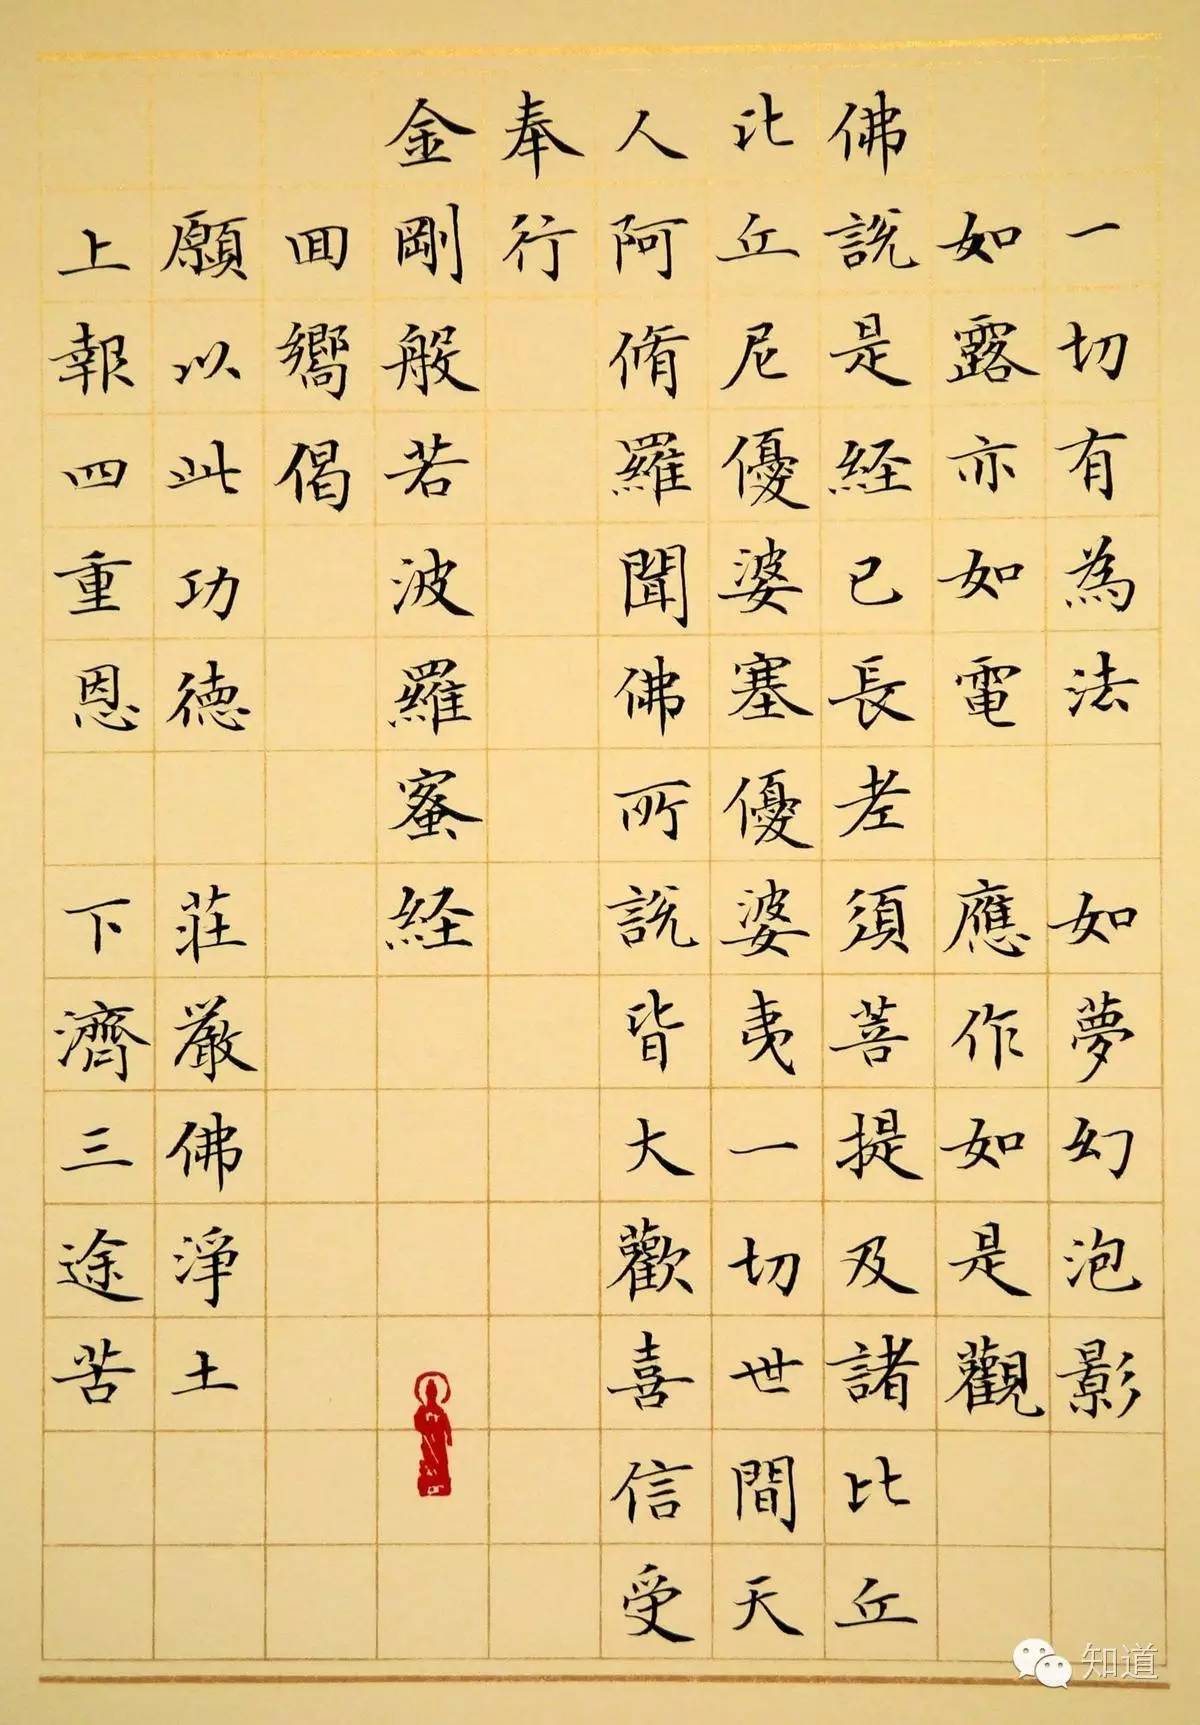 一切有為法　如夢幻泡影
如露亦如電　應作如是觀
佛說是経已長老須菩提及諸比丘
比丘尼優婆塞優婆夷一切世間天
人阿脩羅聞佛所說皆大歡喜信受
奉行
金剛般若波羅蜜経
回嚮偈
願以此功德　莊嚴佛淨土
上報四重恩　下濟三途苦
知道